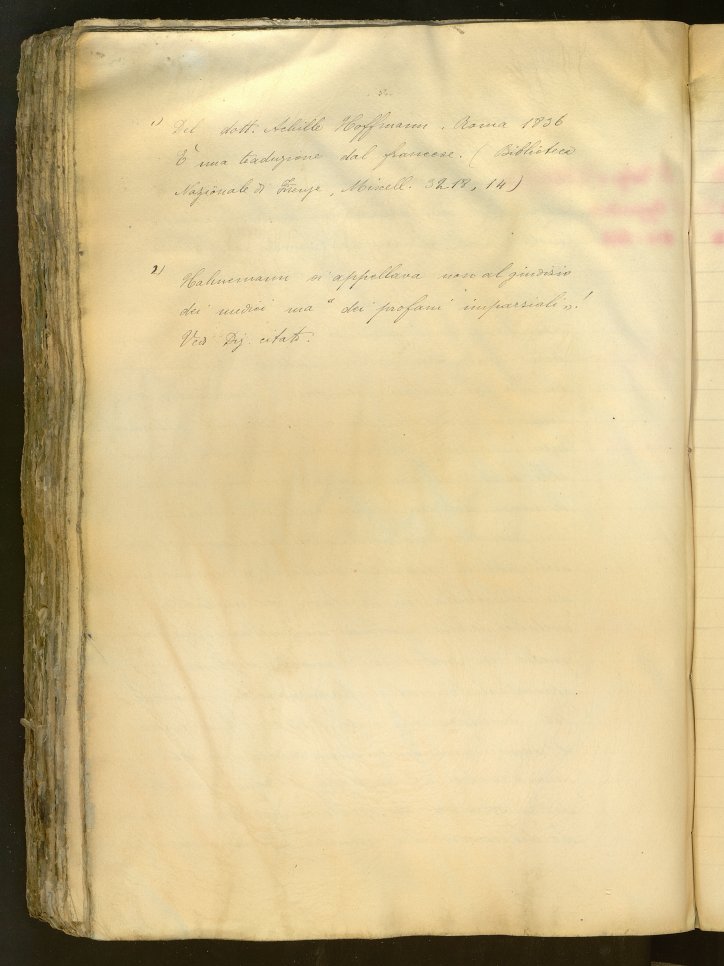 1) Del dott. Achille Hoffmann. Roma 1836
È una traduzione dal francese. (Biblioteca
Nazionale di Firenze, Miscell. 3218, 14)
2) Hahnemann si appellava non al giudizio
dei medici ma "dei profani imparziali"!
Vedi Diz. citato.